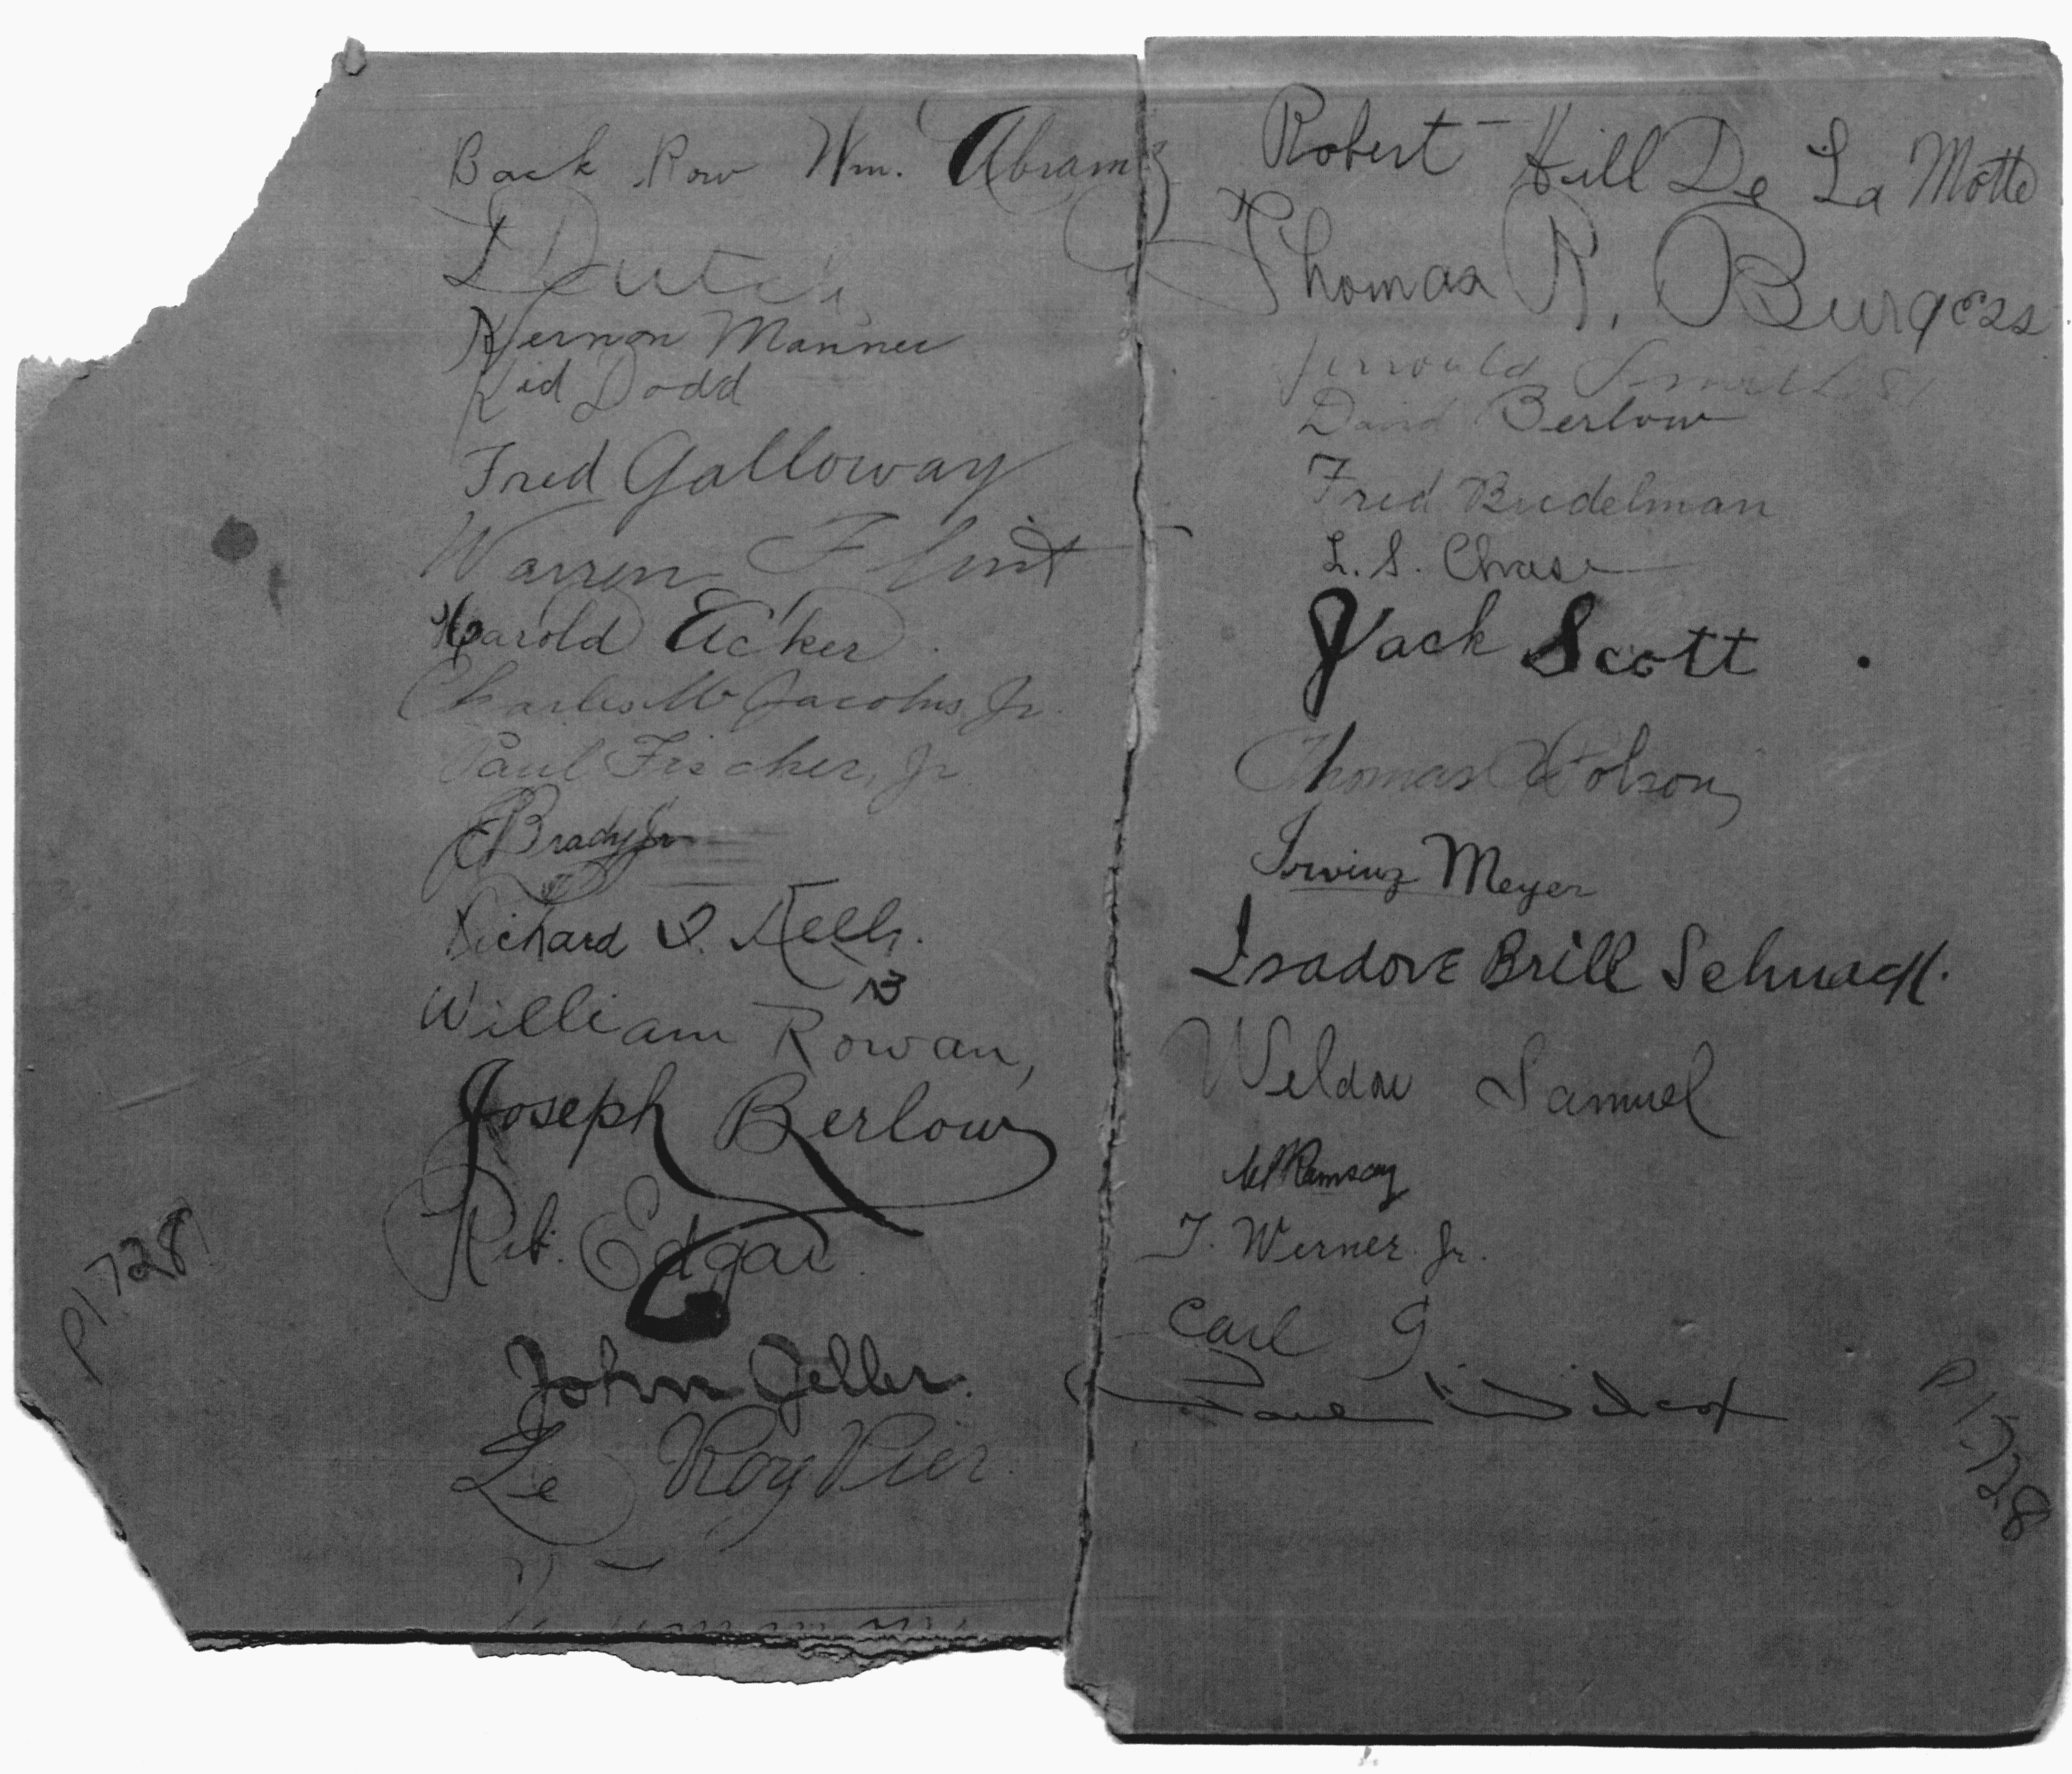 Back Row Wm. Abrams
Dutch
Vernon Manner
Kid Dodd
Fred Galloway
Warren Flint
Harold Acker
Charles W Jacobus Jr.
Paul Fischer, Jr
Brady Jr
Richard
William Rowan,
Joseph Berlow
Rob. Edgar
John Geller.
Le Roy Pier
P1728
Robert Hill De La Motte
Thomas R. Burgess
David Berlow
Fred Budelman
L. S. Chase
Jack Scott
Thomas
Irving Meyer
Isadore Brill
Weldon Samuel
Ramsay
T. Werner Jr.
Carl G
Paul Wilcox
P1728